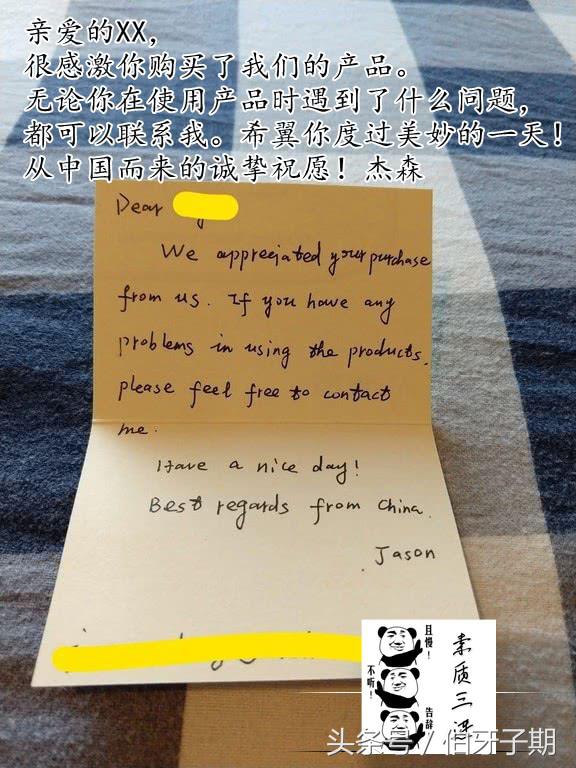 亲爱的XX，
很感激你购买了我们的产品。
无论你在使用产品时遇到了什么问题，
都可以联系我。希翼你度过美妙的一天！
从中国而来的诚挚祝愿！杰森
Dear
We appreciated your purchase
from us. If you have any
problems in using the products,
please feel free to contact
me.
Have a nice day!
Best regards from China.
Jason
且慢！
不听！
告辞
素质三连
头条号 / 伯牙子期